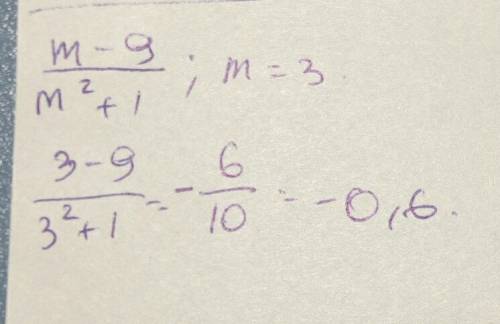 (m - 9)/(m² + 1) ; m = 3.
(3 - 9)/(3² + 1) = - 6/10 = -0,6.